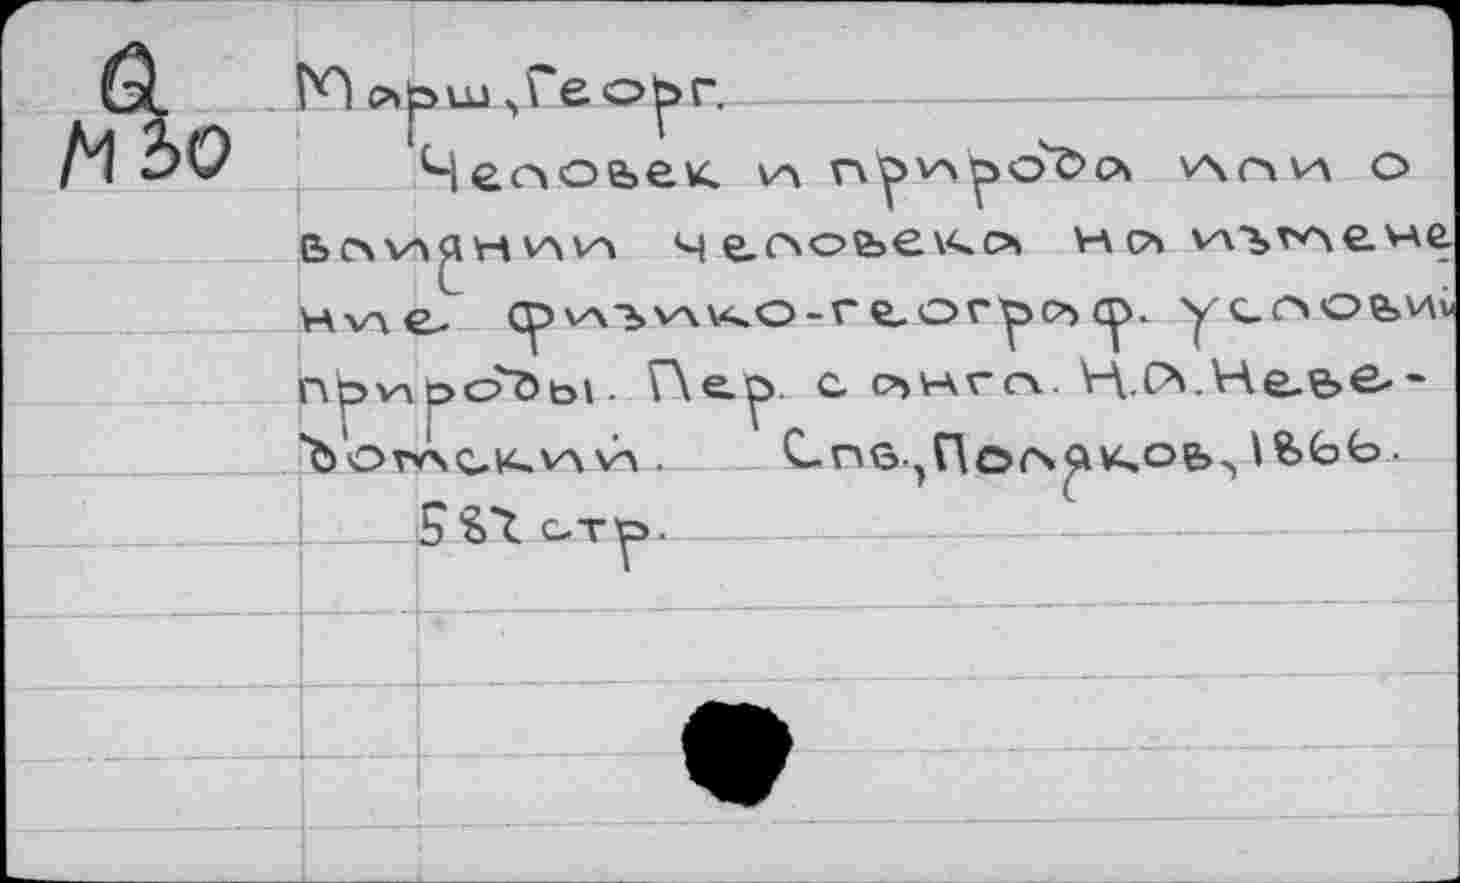 Q
М30
Марш, Георг.
Человек и природа или о
влиянии человека на измене
ние физико-географ. условий
природы. Пер. с англ. Н.А.Неве-
домский. Спб., Поляков, 1866.
587 стр.